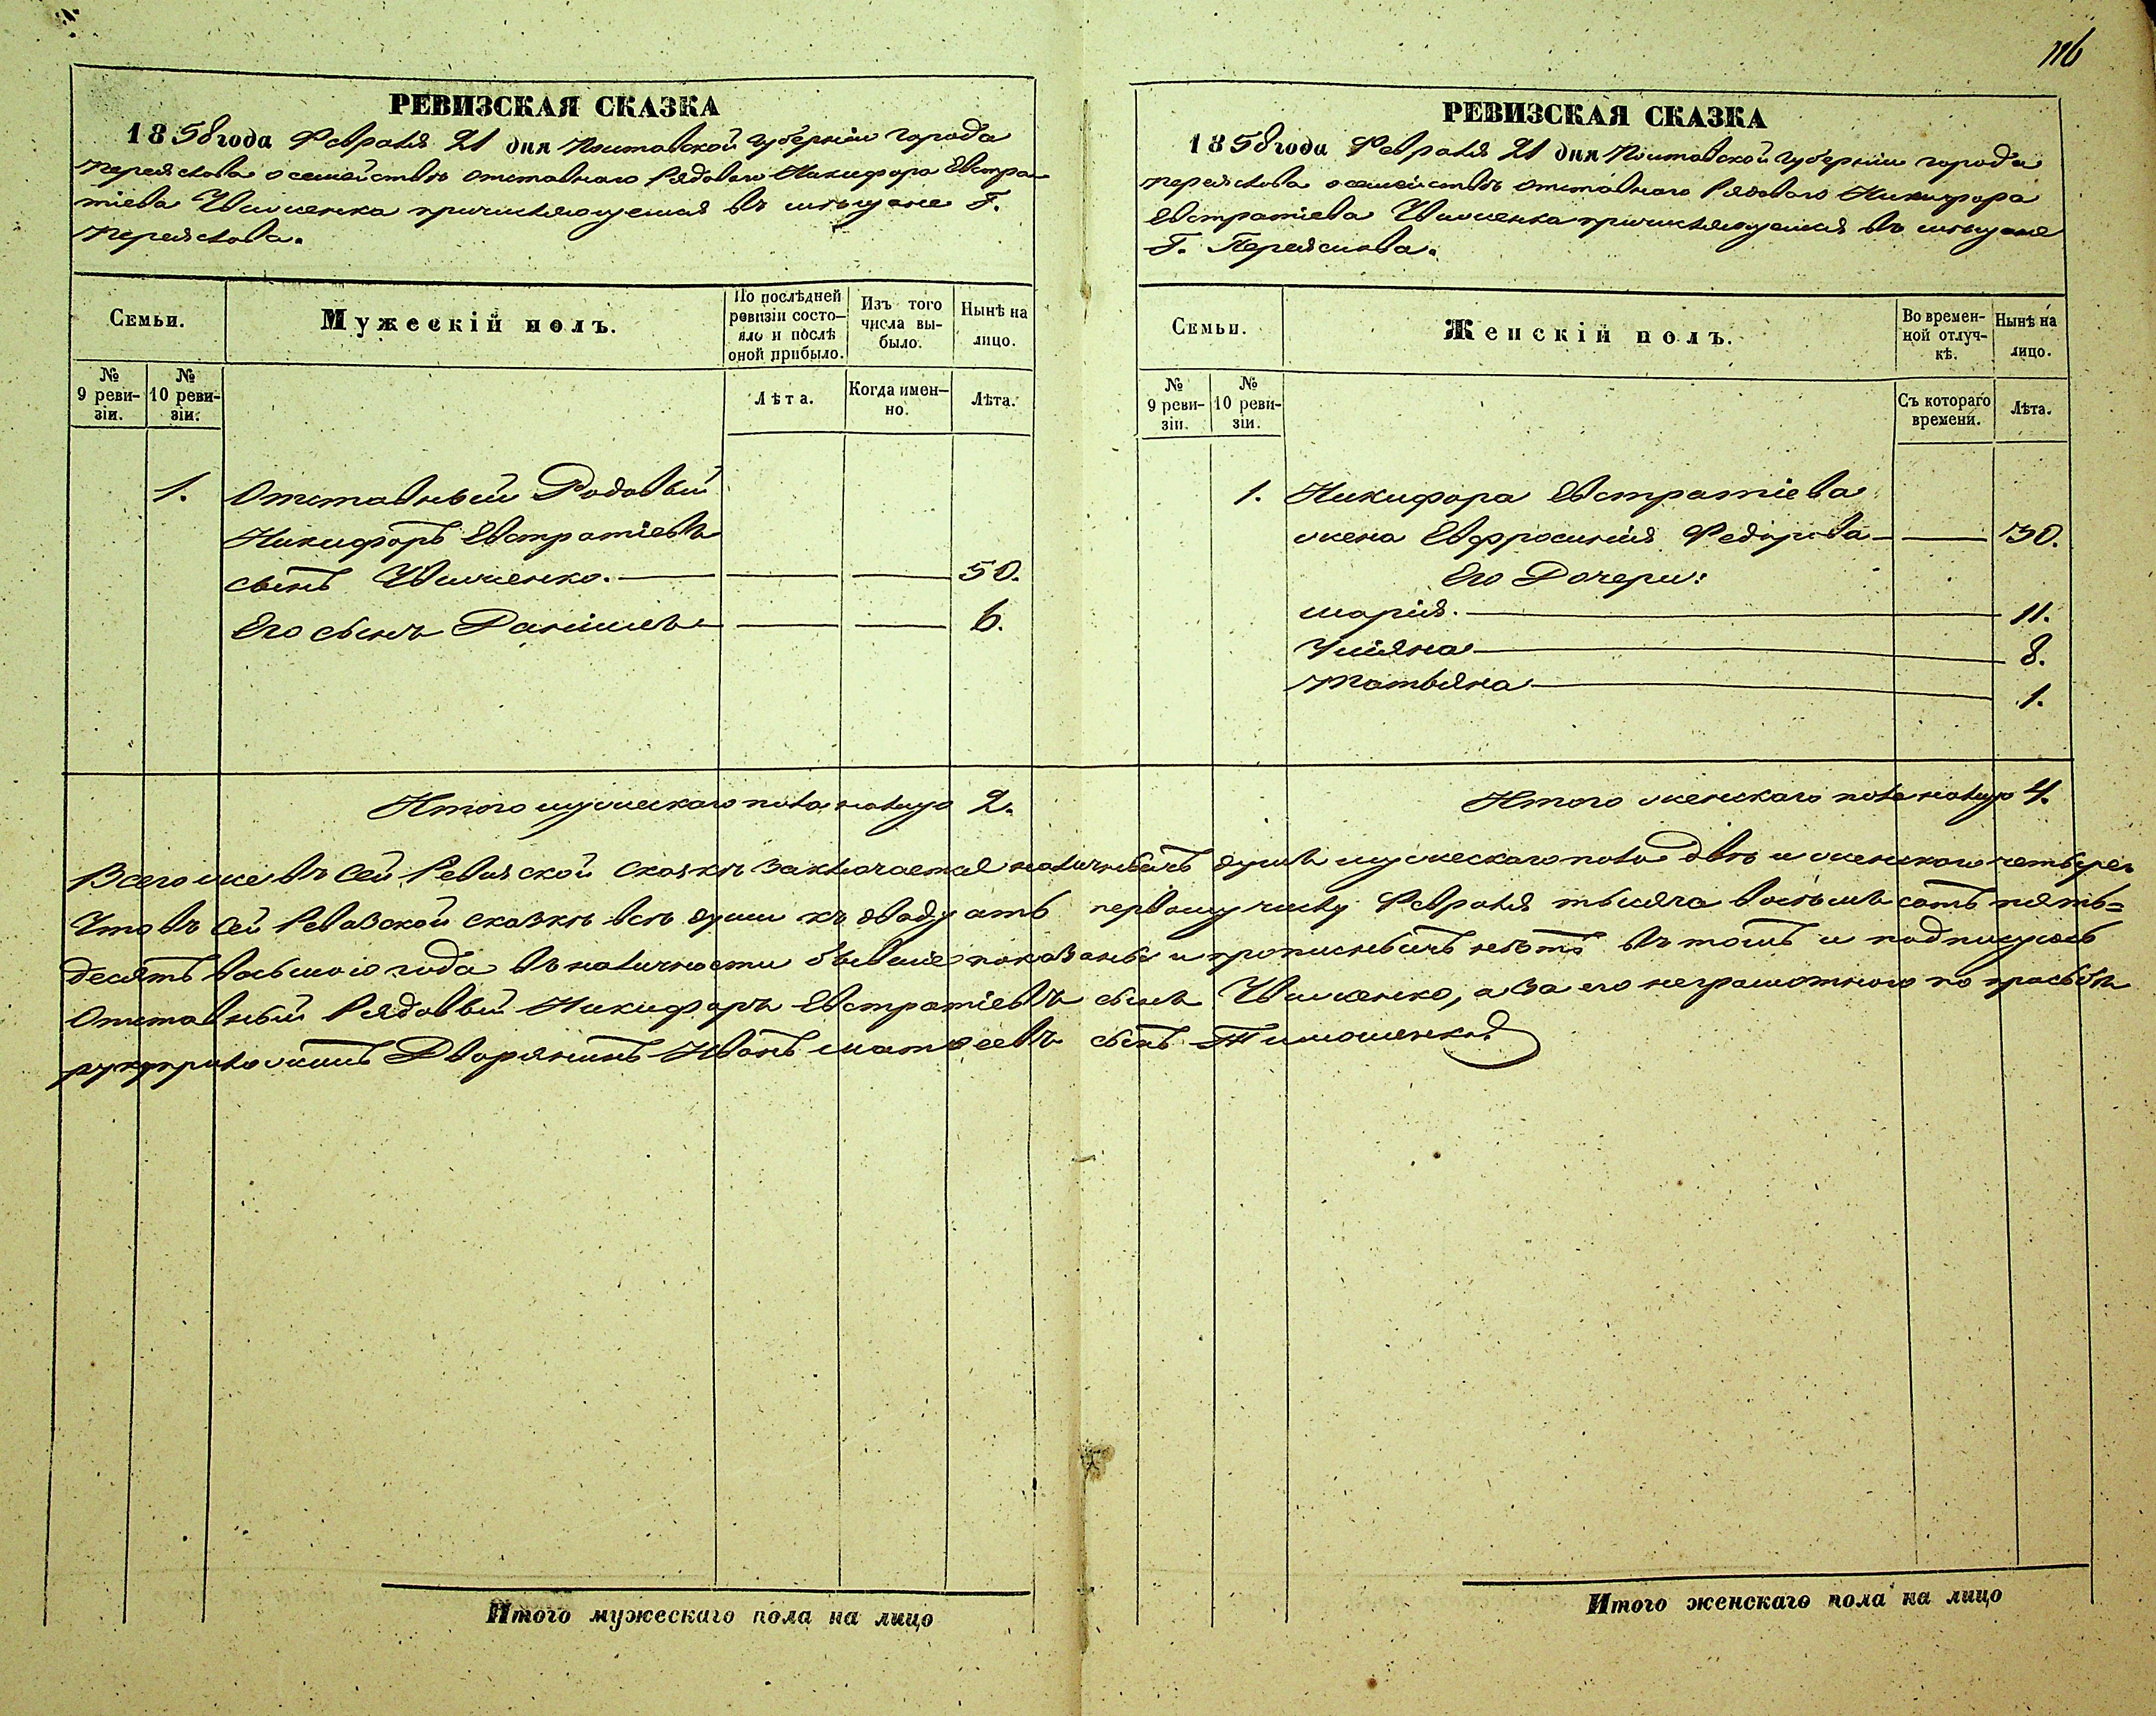 116
РЕВИЗСКАЯ СКАЗКА
1858 года Февраля 21 дня Полтавской Губерніи города
Переяслова о семействѣ отставнаго Рядоваго Никифора Евстра-
тіева причисляющемся въ мѣщане Г.
Переяслова.
Семьи.
Мужескій полъ.
По послѣдней
ревизіи состо-
яло и послѣ
оной прибыло.
Изъ того
числа вы-
было.
Нынѣ на
лицо.
№
9 реви-
зіи.
№
10 реви-
зіи.
Лѣта.
Когда имен-
но.
Лѣта.
1. Отставный Родовый
Никифоръ Евстратіевъ
сынъ 50.
Его сынъ Даніилъ 6.
Итого мужескаго пола налицо 2.
РЕВИЗСКАЯ СКАЗКА
1858 года Февраля 21 дня Полтавской Губерніи города
Переяслова о семействѣ отставнаго Рядоваго Никифора
Евстратіева причисляющемся въ мѣщане
Г. Переяслова.
Семьи.
Женскій полъ.
Во времен-
ной отлуч-
кѣ.
Нынѣ на
лицо.
№
9 реви-
зіи.
№
10 реви-
зіи.
Съ котораго
времени.
Лѣта.
1. Никифора Евстратіева
жена Евфросинія Федорова 30.
Его Дочери:
Марія. 11.
Уліяна 8.
Татьяна 1.
Итого женскаго пола налицо 4.
Всего же въ сей Ревизской сказкѣ заключается наличныхъ душъ мужескаго пола двѣ и женскаго четыре.
Что въ сей Ревизской сказкѣ всѣ души къ двадцать первому числу Февраля тысяча восемь сотъ пять=
десятъ восьмого года въ наличности бывшіе показаны и прописныхъ нѣтъ въ томъ и подписуюсь
Отставный Рядовый Никифоръ Евстратіевъ сынъ а за его неграмотного по прозьбѣ
руку приложилъ Дворянинъ Иванъ Матвеевъ сынъ Тимошенко.
Итого мужескаго пола на лицо
Итого женскаго пола на лицо